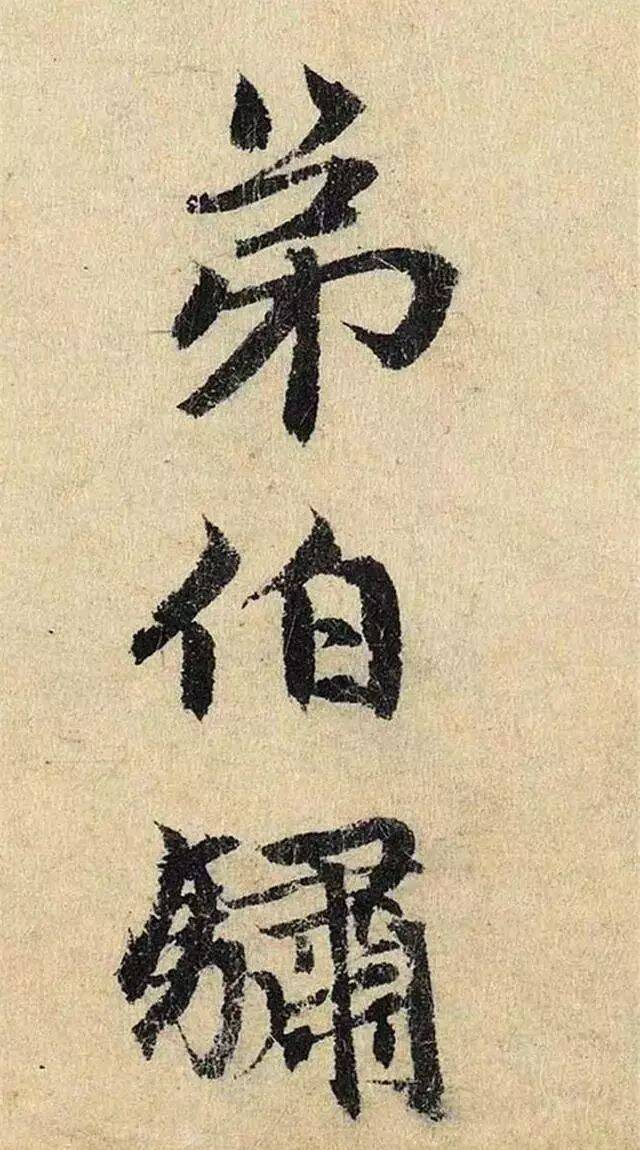 弟伯驌